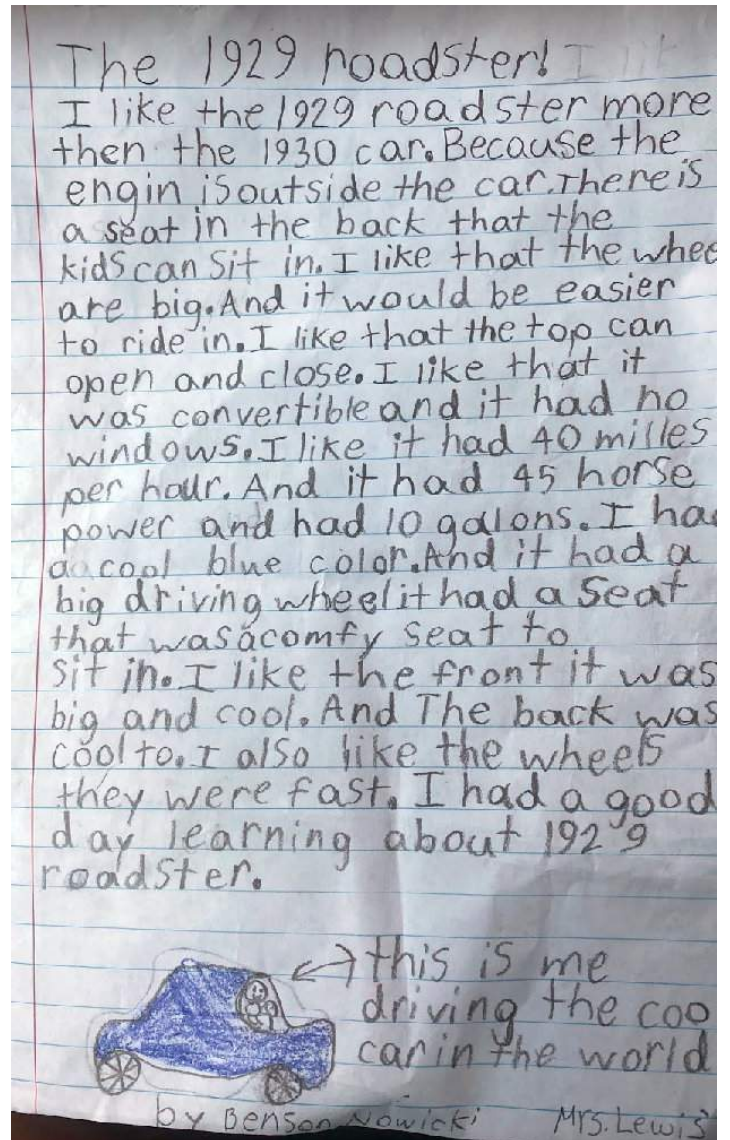 The 1929 roadster!
I like the 1929 roadster more
then the 1930 car. Because the
engin is outside the car. There is
a seat in the back that the
kids can sit in. I like that the whee
are big. And it would be easier
to ride in. I like that the top can
open and close. I like that it
was convertible and it had no
windows. I like it had 40 milles
per hour. And it had 45 horse
power and had 10 galons. I ha
a cool blue color. And it had a
big driving wheel it had a seat
that was a comfy seat to
sit in. I like the front it was
big and cool. And The back was
cool to. I also like the wheels
they were fast. I had a good
day learning about 1929
roadster.
this is me
driving the coo
car in the world
by Benson Nowicki Mrs. Lewis